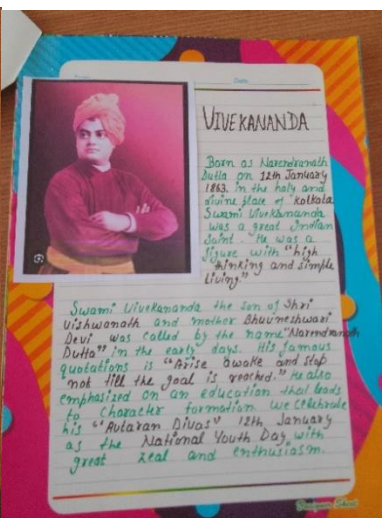 Date:
VIVEKANANDA
Born as Narendranath
Dutta on 12th January
1863. in the holy and
divine place of "Kolkata
Swami Vivekananda
was a great Indian
Saint. He was a
figure with "high
thinking and simple
living."
Swami Vivekananda the son of Shri
Vishwanath and mother Bhuvneshwari
Devi was called by the name "Narendranath
Dutta" in the early days. His famous
quotations is "Arise awake and stop
not till the goal is reached." He also
emphasized on an education that leads
to character formation. We celebrate
his "Avtaran Divas" 12th January
as the National Youth Day with
great zeal and enthusiasm.